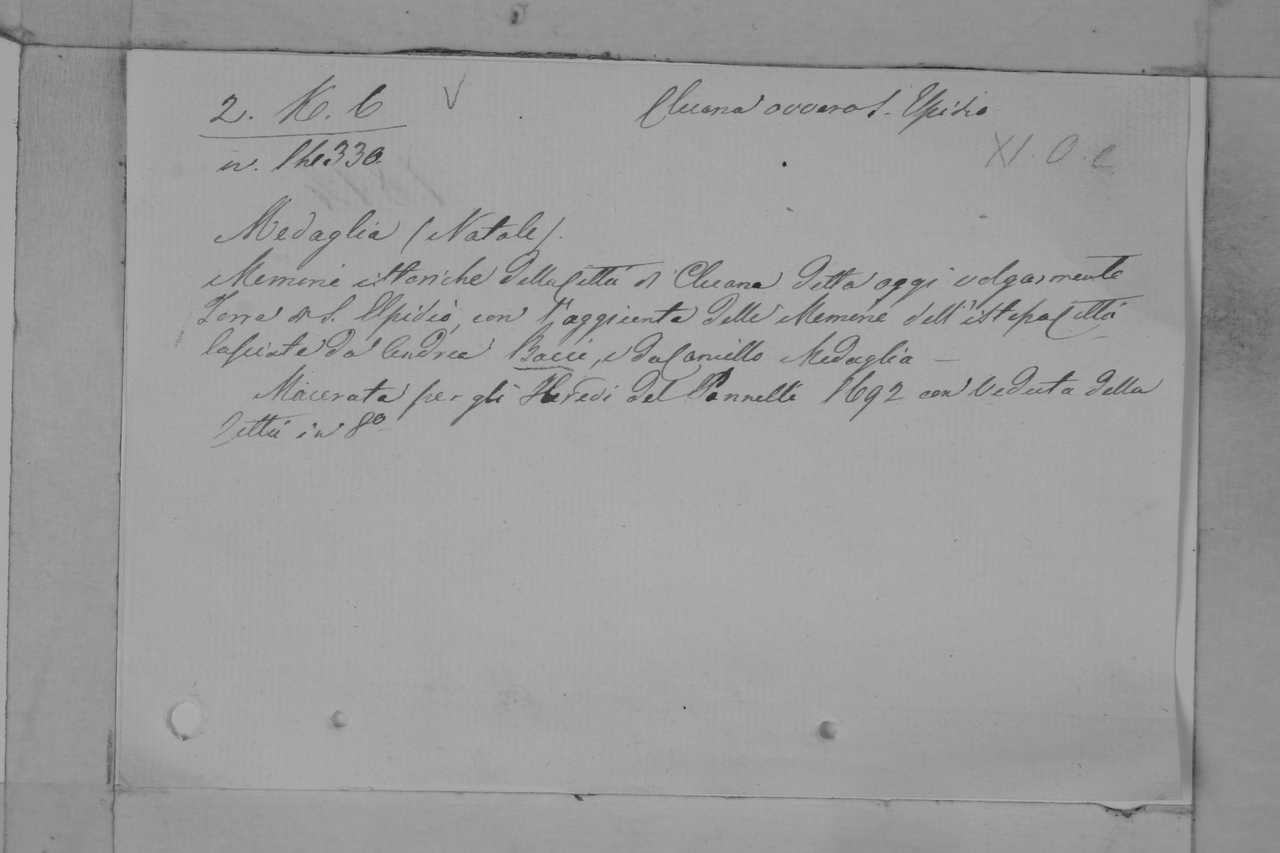 2. K. 6 V Cluana ovvero S. Elpidio
XI. O. c
Medaglia (Natale).
Memorie istoriche della Città di Cluana detta oggi volgarmente
Terra di S. Elpidio, con l'aggiunta delle Memorie dell'istessa Città
lasciate da Andrea Bacci, e da Camillo Medaglia —
Macerata per gli Heredi del Pannelli 1692 con Veduta della
Città in 8º